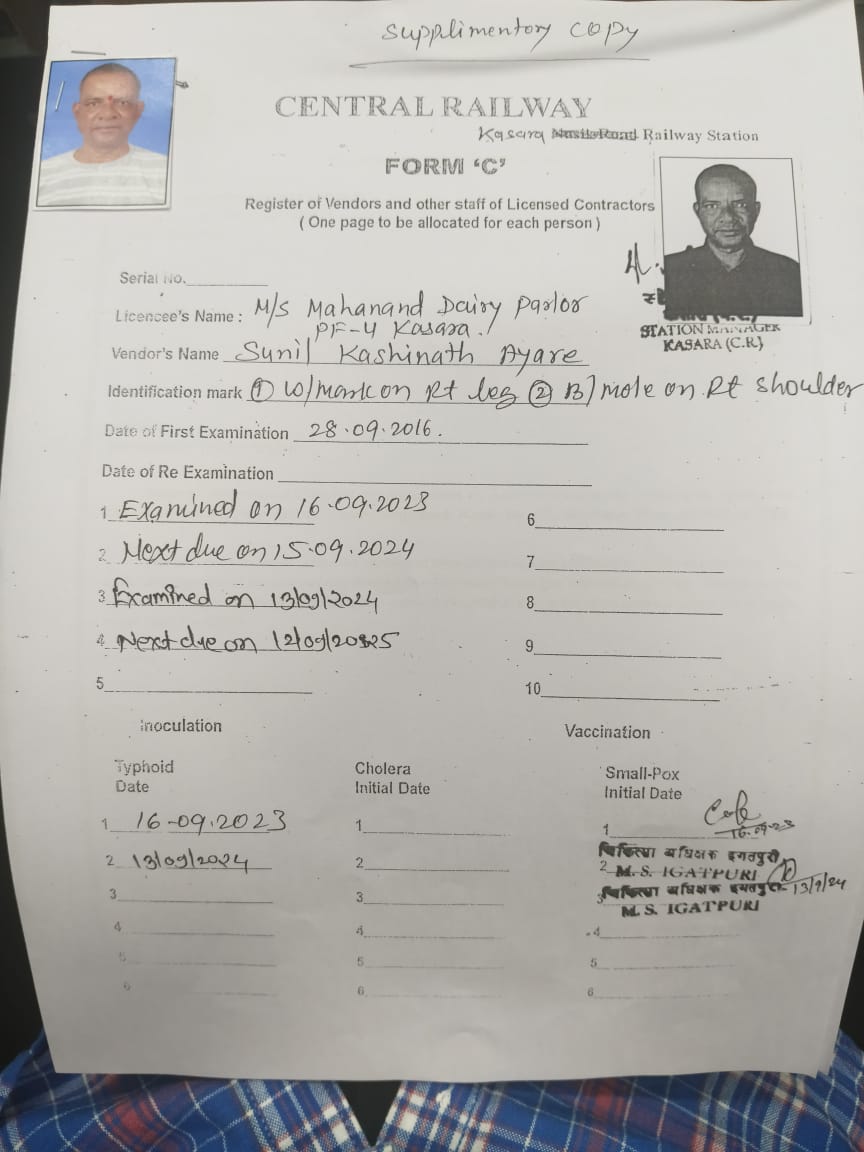 Supplimentory copy
CENTRAL RAILWAY
Kasara Nasik Road Railway Station
FORM 'C'
Register of Vendors and other staff of Licensed Contractors
( One page to be allocated for each person )
Serial No.
STATION MANAGER
KASARA (C.R.)
Licencee's Name : M/s Mahanand Dairy Parlor
PF-4 Kasara.
Vendor's Name Sunil Kashinath Ayare
Identification mark ① W/mark on Rt leg ② B/mole on Rt shoulder
Date of First Examination 28.09.2016.
Date of Re Examination
1 Examined on 16.09.2023 6
2 Next due on 15.09.2024 7
3 Examined on 13/09/2024 8
4 Next due on 12/09/2025 9
5 10
Inoculation Vaccination
Typhoid Cholera Small-Pox
Date Initial Date Initial Date
1 16-09.2023 1 1 16.09.23
चिकित्सा अधिक्षक इगतपुरी
2 13/09/2024 2 2 M. S. IGATPURI 13/9/24
3 3 3 चिकित्सा अधिक्षक इगतपुरी
M. S. IGATPURI
4 4 4
5 5 5
6 6 6